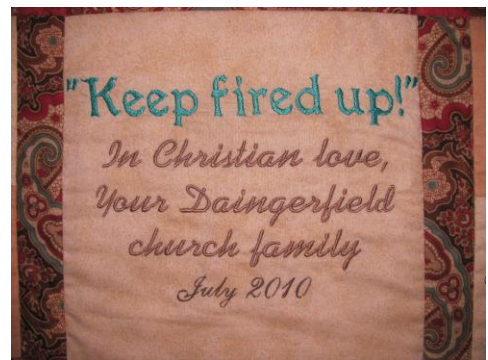 "Keep fired up!"
In Christian love,
Your Daingerfield
church family
July 2010